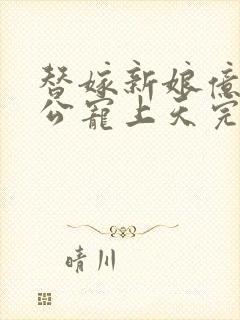 替嫁新娘億
公寵上天完
晴川